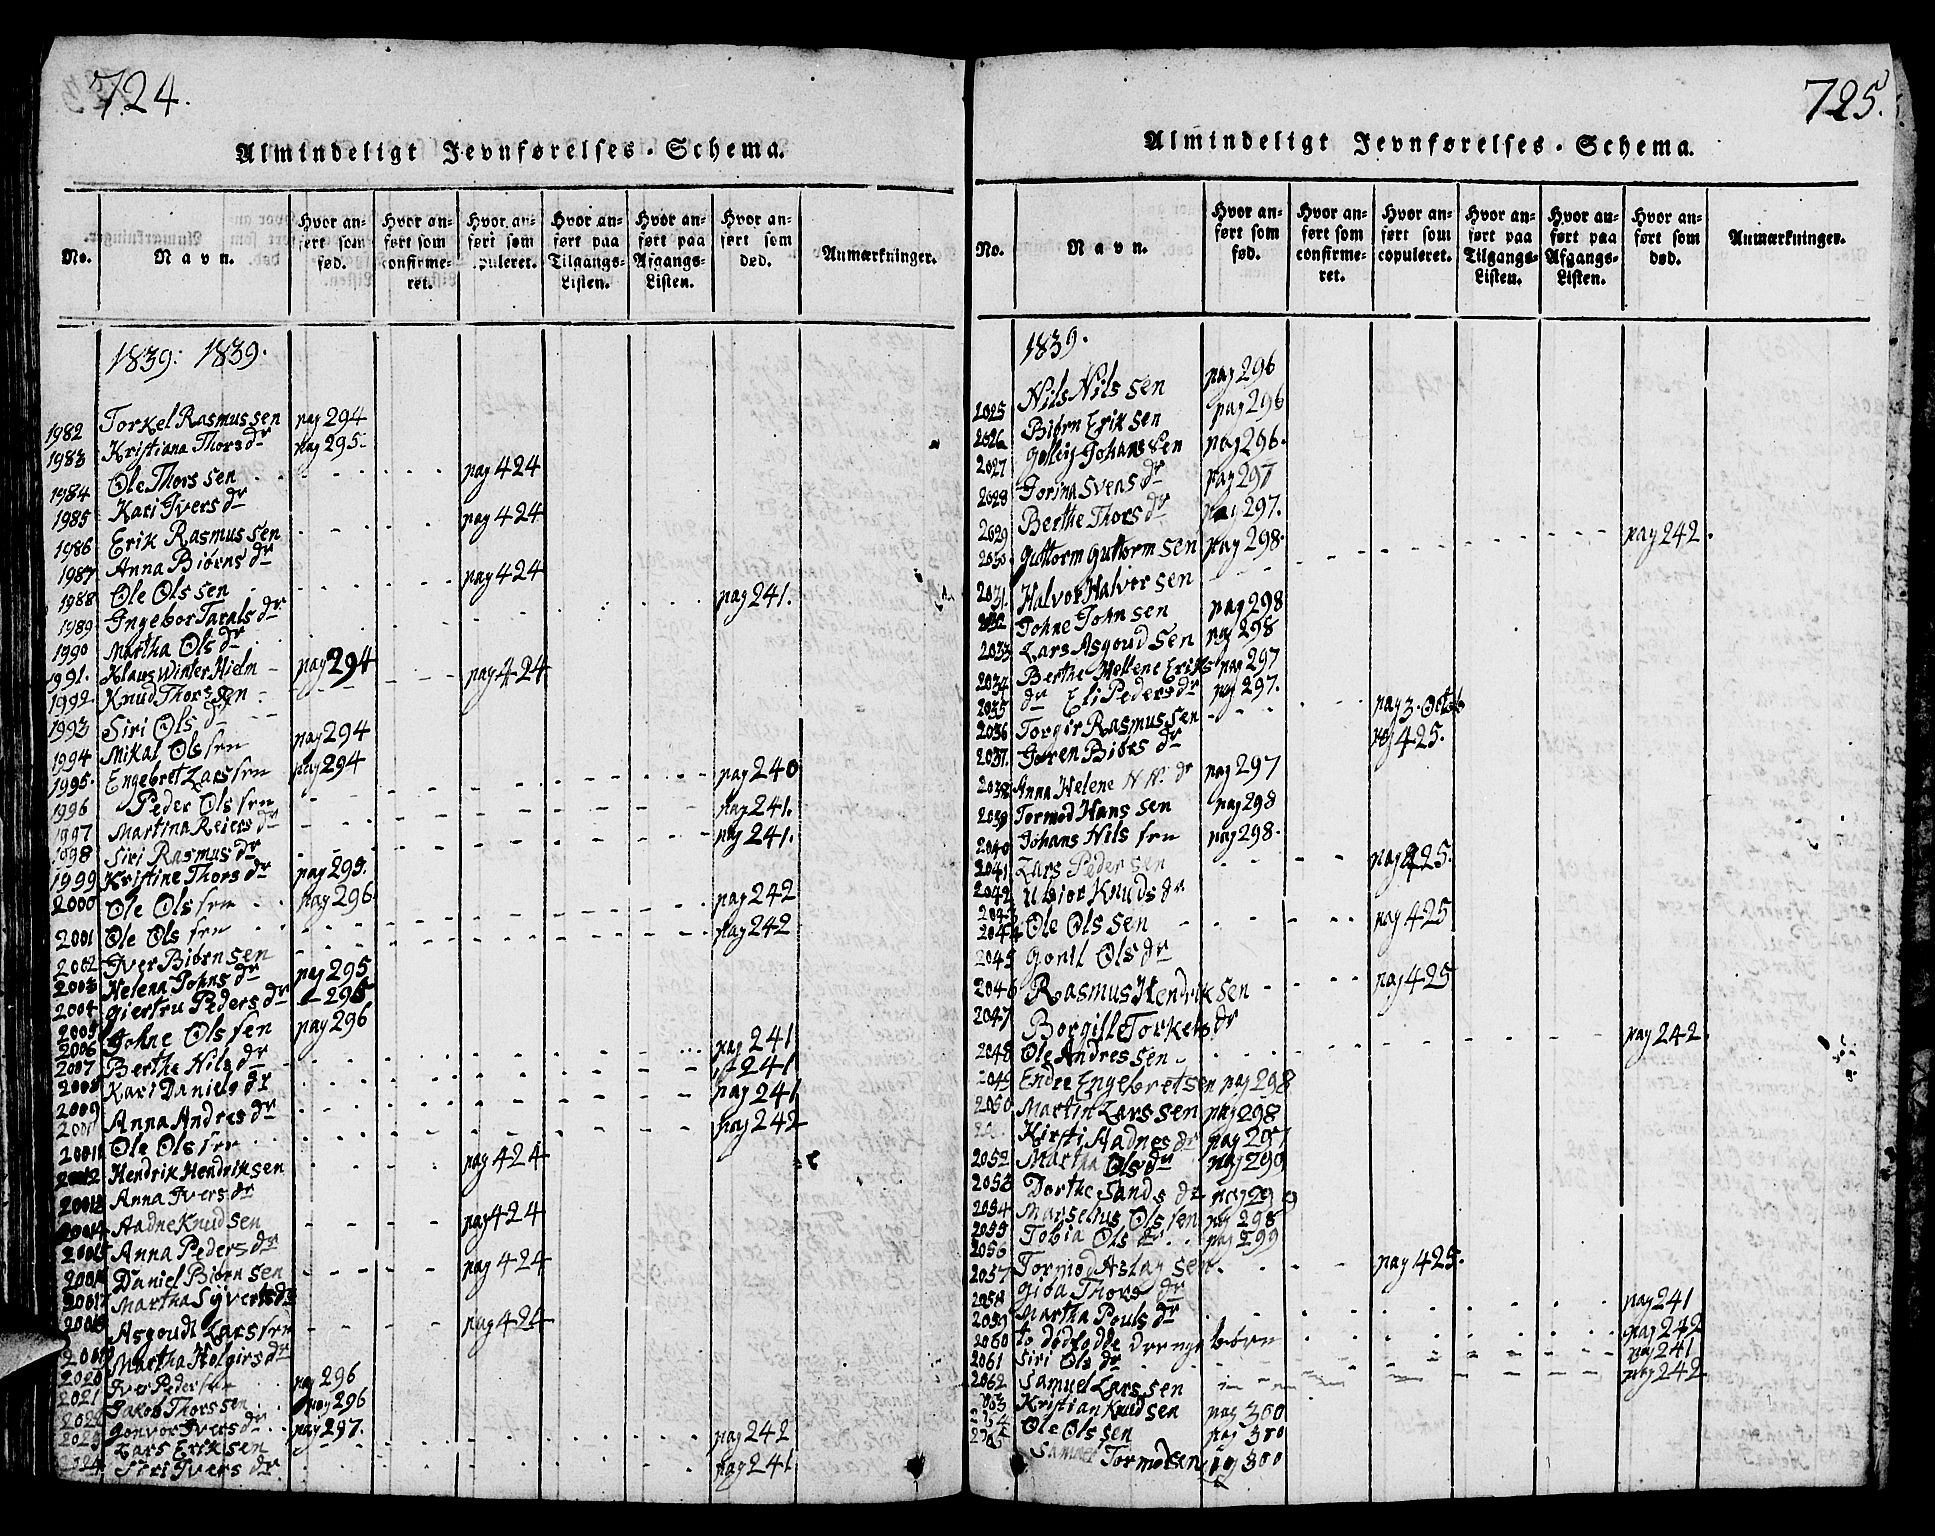 724.
Almindeligt Jevnførelses-Schema.
No. Navn. Hvor anført som fød. Hvor anført som confirmeret. Hvor anført som copuleret. Hvor anført paa Tilgangs-Listen. Hvor anført paa Afgangs-Listen. Hvor anført som død. Anmærkninger.
1839: 1839.
1982 Torkel Rasmussen pag 294
1983 Kristiana Thorsdr pag 295.
1984 Ole Thorssen pag 424
1985 Kari Iversdr
1986 Erik Rasmussen pag 424
1987 Anna Biörnsdr
1988 Ole Olssen pag 424
1989 Ingebor Taralsdr pag 241.
1990 Martha Olsdr
1991. Klaus Winter Hielm pag 294
1992. Knud Thorssen pag 424
1993 Siri Olsdr
1994 Mikal Olssen pag 294
1995. Engebret Larssen pag 294
1996 Peder Olssen pag 240
1997 Martina Reiersdr pag 241.
1998 Siri Rasmusdr pag 241.
1999 Kristine Thorsdr pag 295.
2000 Ole Olssen pag 296
2001 Ole Olssen pag 242
2002 Iver Biörnsen pag 242
2003 Helena Johnsdr pag 295
2004 Giertru Pedersdr - 295
2005 Johne Olssen pag 296
2006 Berthe Nilsdr pag 241
2007 Kari Danielsdr 241
2008 Anna Andresdr pag 241
2009 Ole Olssen pag 242
Hendrik Hendriksen pag 424
Anna Iversdr
Aadne Knudsen pag 424
Anna Pedersdr
Daniel Biörnsen pag 424
Martha Syvertsdr
Asgoudt Larssen pag 424
Martha Holgirsdr
2020 Iver Pederssen pag 296
2021 Jakob Thorssen pag 296
Gonvor Iversdr pag 297.
Lars Eriksen pag 242
Siri Iversdr pag 241
725.
Almindeligt Jevnførelses-Schema.
No. Navn. Hvor anført som fød. Hvor anført som confirmeret. Hvor anført som copuleret. Hvor anført paa Tilgangs-Listen. Hvor anført paa Afgangs-Listen. Hvor anført som død. Anmærkninger.
1839.
2025 Nils Nilssen pag 296
2026 Biørn Eriksen pag 296
2027 Golleig Johanssen pag 296.
2028 Jorina Svensdr pag 297
2029 Berthe Thorsdr pag 297.
2030 Guttorm Guttormsen pag 298.
2031. Halvor Halvorsen pag 242.
Johne Johnsen pag 298
2033 Lars Asgoudsen pag 298
2034 Berthe Hellene Eriksdr pag 297
2035 Eli Pedersdr pag 297.
2036 Torger Rasmussen
2037. Joren Biørsdr pag 425.
2038 Anna Helene N.N. dr pag 297
2039 Tormod Hanssen pag 298
2040 Johans Nilssen pag 298.
2041 Lars Pedersen pag 425.
2042 Knudsdr
2043
2044 Ole Olssen pag 425
2045 Gonil Olsdr
2046 Rasmus Hendriksen pag 425
2047 Borgille Torkelsdr
2048 Ole Andressen pag 242.
2049 Endre Engebretsen pag 298
2050 Martin Larssen pag 298
Kirsti Aadnesdr
2052 Martha Olsdr
2053 Dorthe Sandsdr
2054 Marselius Olssen pag 298
2055 Tobia Olsdr pag 299
2056
2057 Tormod Aslagsen pag 425.
2058 Giøa Thorsdr
2059 Martha Poulsdr pag 241
2060 to dødfødde drenge børn pag 242
2061 Siri Olsdr pag 241
2062 Samuel Larssen pag 242
Kristian Knudsen pag 300
Ole Olssen pag 300
Tormodsen 300